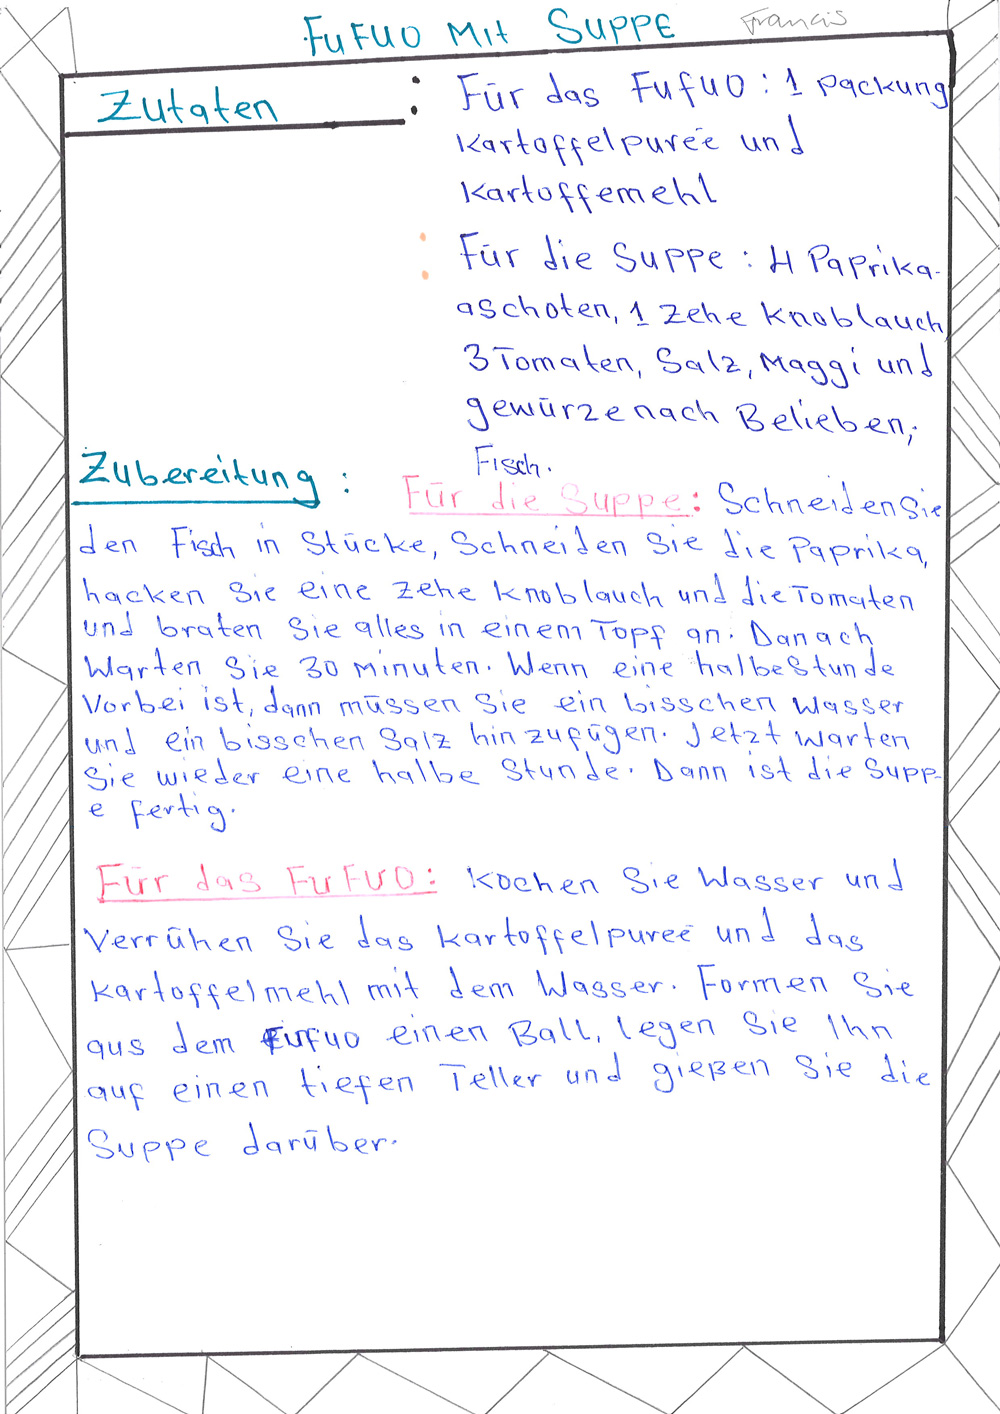 FuFUO MIt SUPPE Francis
Zutaten : Für das FufuO : 1 packung
Kartoffelpureé und
Kartoffemehl
: Für die Suppe : 4 Paprika-
aschoten, 1 Zehe Knoblauch
3 Tomaten, Salz, Maggi und
gewürze nach Belieben,
Fisch.
Zubereitung :
Für die Suppe: Schneiden Sie
den Fisch in Stücke, Schneiden Sie die Paprika,
hacken Sie eine Zehe Knoblauch und die Tomaten
und braten Sie alles in einem Topf an. Danach
Warten Sie 30 Minuten. Wenn eine halbe Stunde
Vorbei ist, dann müssen Sie ein bisschen Wasser
und ein bisschen Salz hinzufügen. Jetzt warten
Sie wieder eine halbe Stunde. Dann ist die Supp-
e fertig.
Für das FuFUO: Kochen Sie Wasser und
Verrühen Sie das Kartoffelpureé und das
Kartoffelmehl mit dem Wasser. Formen Sie
aus dem Fufuo einen Ball, legen Sie Ihn
auf einen tiefen Teller und gießen Sie die
Suppe darüber.